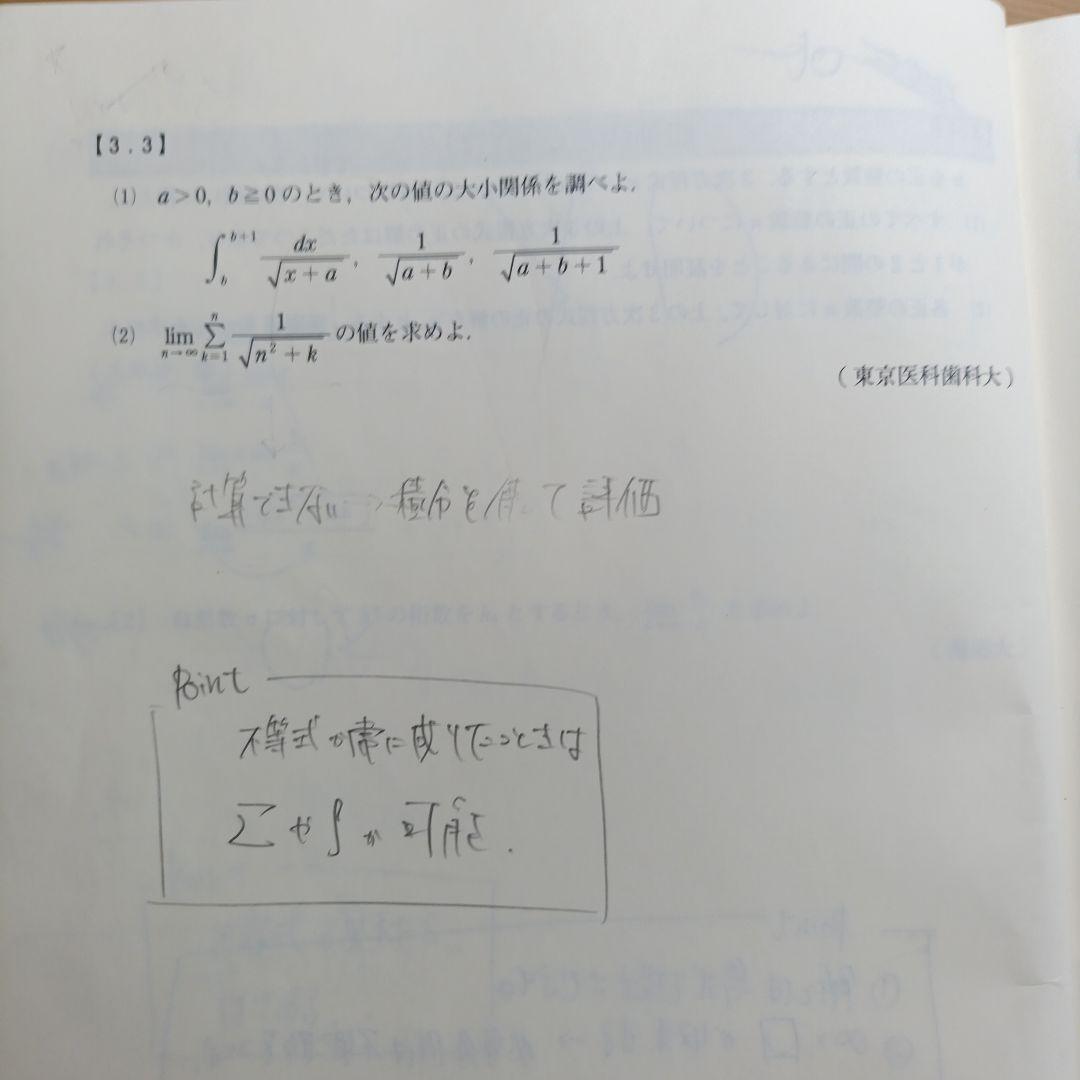 【3.3】
(1) a>0, b≧0のとき, 次の値の大小関係を調べよ.
∫_b^{b+1} dx/√(x+a), 1/√(a+b), 1/√(a+b+1)
(2) lim_{n→∞} Σ_{k=1}^{n} 1/√(n²+k) の値を求めよ.
(東京医科歯科大)
計算できない→積分を使って評価
Point
不等式が常に成り立つときは
Σや∫が可能.